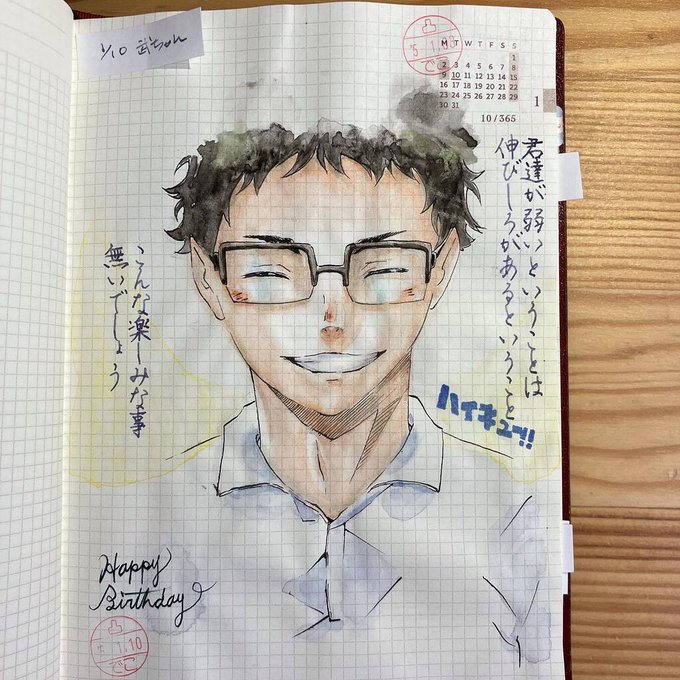 1/10 武ちゃん
凸
でこ
M T W T F S S
1
2 3 4 5 6 7 8
9 10 11 12 13 14 15
16 17 18 19 20 21 22
23 24 25 26 27 28 29
30 31
10/365
1
君達が弱いということは
伸びしろがあるということ
こんな楽しみな事
無いでしょう
ハイキュー!!
Happy
Birthday
凸
1.10
でこ